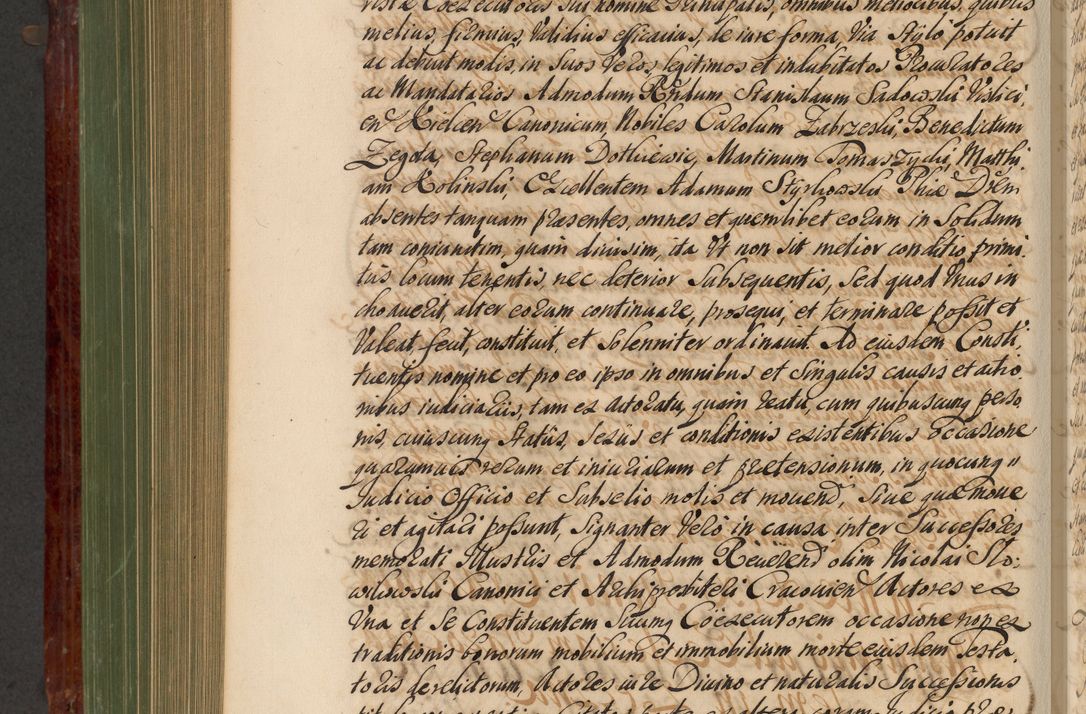 melius, firmius, Validius efficacius, de iure forma, Via Stylo potuit
ac debuit modis, in Suos Veros, legitimos et indubitatos Procuratores
ac Mandatarios Admodum Rndum Stanislaum Sadowski Vislici,
en Kielcen Canonicum, Nobiles Carolum Zabrzeski, Benedictum
Zegota, Stephanum Dotkiewic, Martinum Tomaszycki, Matthi
am Kolinski, Excellentem Adamum Styrkowski Phiæ Drem
absentes tanquam præsentes, omnes et quemlibet eorum in Solidum
tam coniunctim, quam diuisim, ita Vt non Sit melior conditio primi,
tus locum tenentis, nec deterior Subsequentis, Sed quod Vnus in
choauerit, alter eorum continuare, prosequi, et terminare possit et
Valeat, fecit, constituit, et Solenniter ordinauit. Ad eiusdem Consti,
tuentis nomine et pro eo ipso in omnibus et Singulis causis et actio
nibus iudiciariis, tam ex actoratu, quam reatu, cum quibuscunq perso
nis, cuiuscunq Statûs, Sexûs et conditionis existentibus occasione
quarumuis rerum et iniuriarum et prætensionum, in quocunq
Iudicio Officio et Subselio motis et mouend, Siue quæ moue
ri et agitari possunt, Signanter Verò in causa inter Successores
memorati Illustris et Admodum Reuerend olim Nicolai Slo,
wikowski Canonici et Archipresbiteri Cracouien Actores ex
Vna et Se Constituentem Suumq Coëxecutorem occasione non ex
traditionis bonorum mobilium et immobilium morte eiusdem Testa,
toris derelictorum, Actores iure Diuino et naturalis Successionis